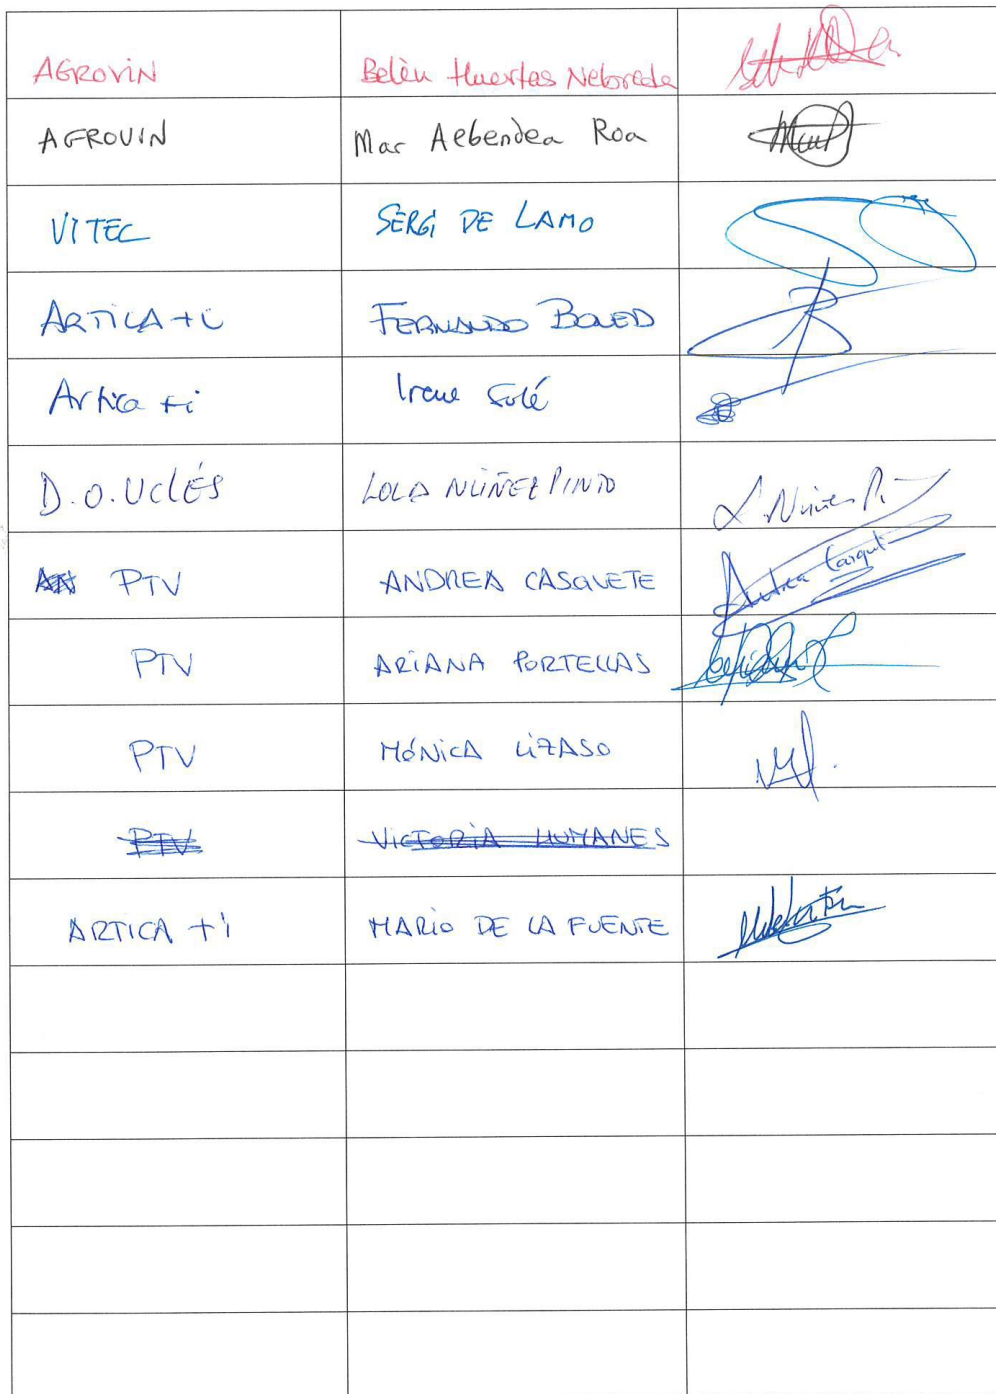 AGROVIN Belén Huertas Nebreda
AGROVIN Mar Albendea Roa
VITEC SERGI DE LAMO
ARTICA +i FERNANDO BOLED
Artica +i Irene Solé
D.O. UCLÉS LOLA NÚÑEZ PINTO L. Núñez P.
PTV ANDREA CASQUETE Andrea Casquete
PTV ARIANA PORTELLAS
PTV MÓNICA LIZASO
PTV VICTORIA HUMANES
ARTICA +i MARIO DE LA FUENTE